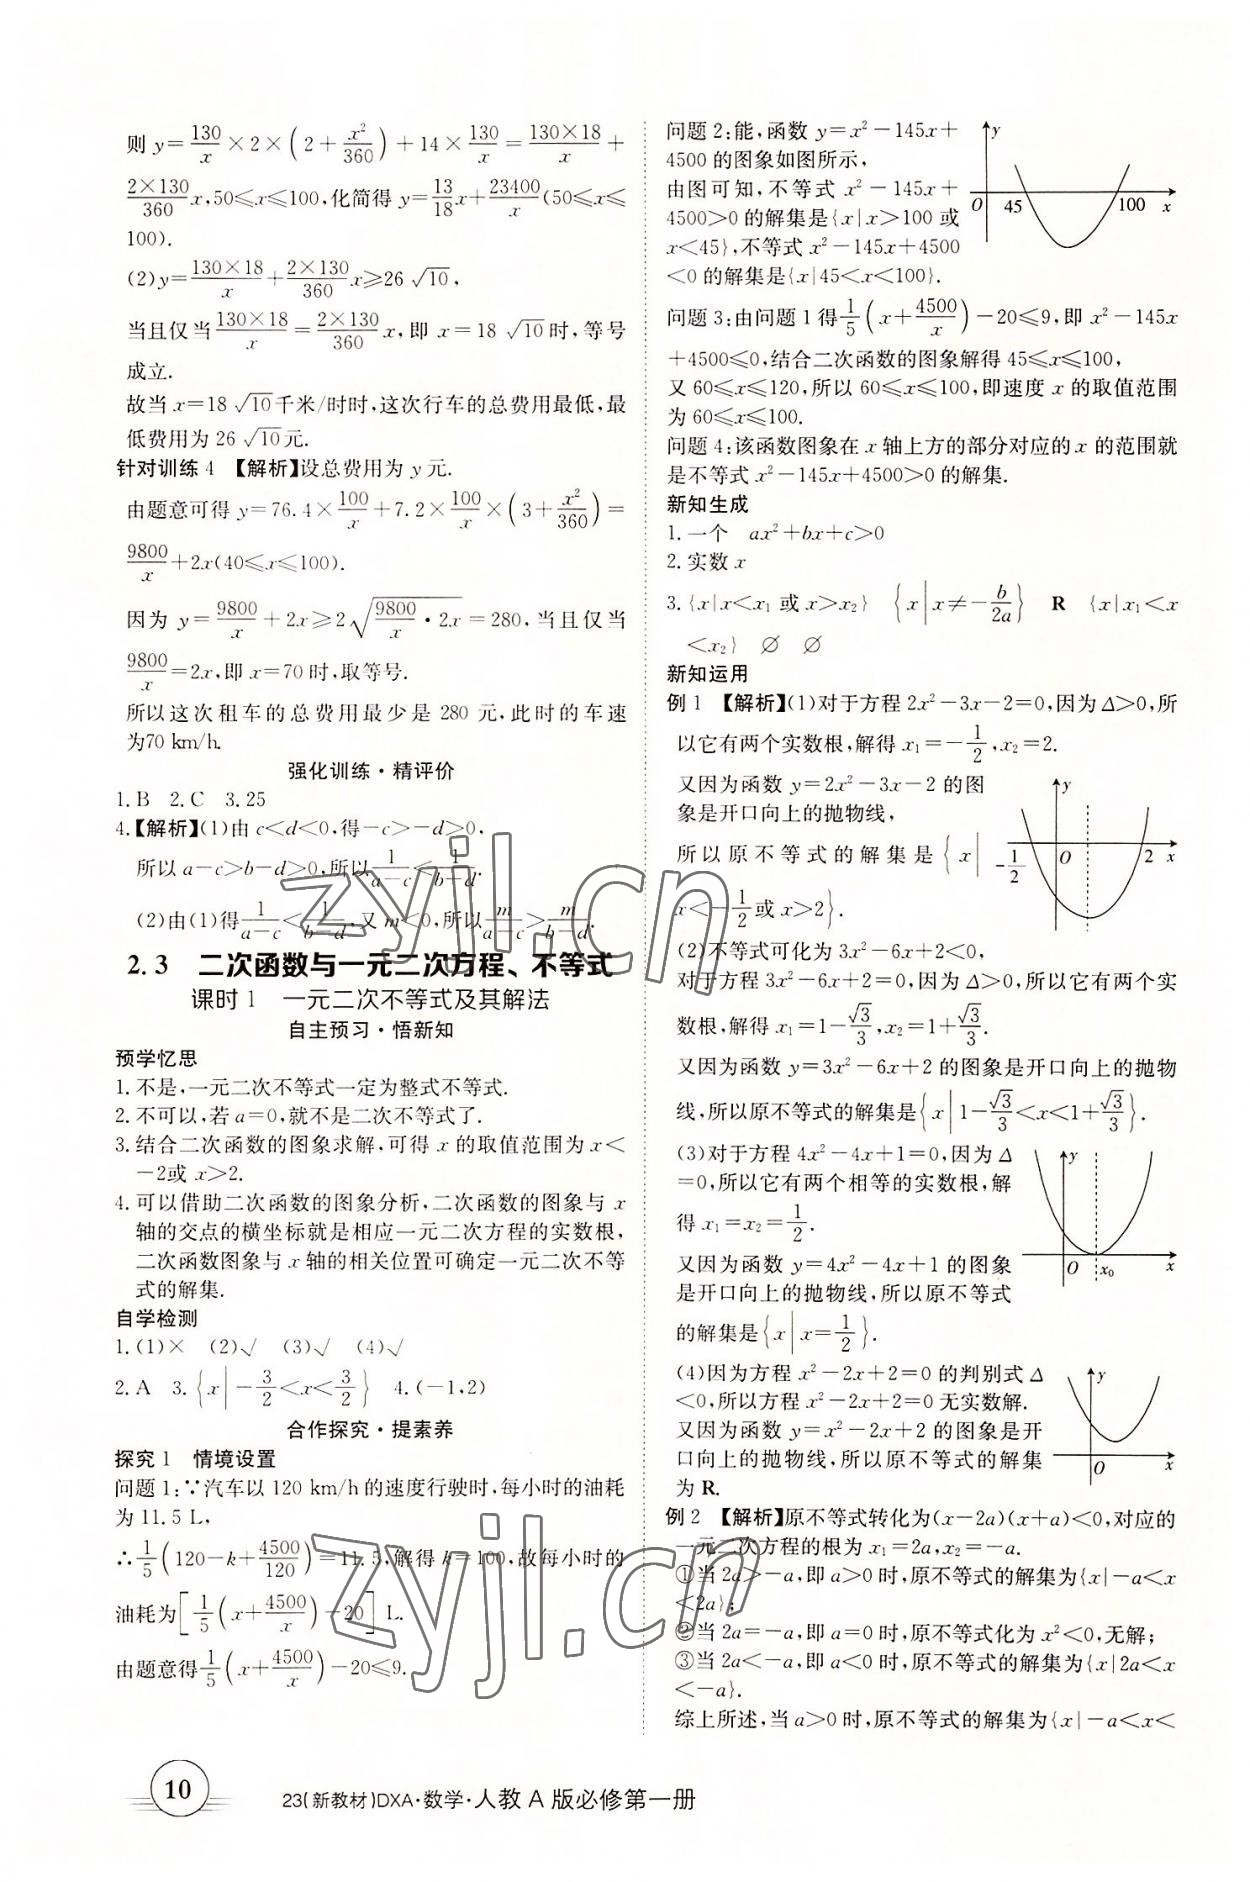 则 y=130/x×2×(2+x²/360)+14×130/x=130×18/x+
2×130/360 x,50≤x≤100,化简得 y=13/18 x+23400/x(50≤x≤
100).
(2)y=130×18/x+2×130/360 x≥26√10,
当且仅当130×18/x=2×130/360 x,即 x=18√10时,等号
成立.
故当 x=18√10千米/时时,这次行车的总费用最低,最
低费用为 26√10元.
针对训练 4 【解析】设总费用为 y 元.
由题意可得 y=76.4×100/x+7.2×100/x×(3+x²/360)=
9800/x+2x(40≤x≤100).
因为 y=9800/x+2x≥2√(9800/x·2x)=280,当且仅当
9800/x=2x,即 x=70 时,取等号.
所以这次租车的总费用最少是 280 元,此时的车速
为70 km/h.
强化训练·精评价
1.B 2.C 3.25
4.【解析】(1)由 c<d<0,得-c>-d>0,
所以 a-c>b-d>0,所以1/(a-c)<1/(b-d).
(2)由(1)得1/(a-c)<1/(b-d),又 m<0,所以m/(a-c)>m/(b-d).
2.3 二次函数与一元二次方程、不等式
课时 1 一元二次不等式及其解法
自主预习·悟新知
预学忆思
1.不是,一元二次不等式一定为整式不等式.
2.不可以,若 a=0,就不是二次不等式了.
3.结合二次函数的图象求解,可得 x 的取值范围为 x<
-2或 x>2.
4.可以借助二次函数的图象分析,二次函数的图象与 x
轴的交点的横坐标就是相应一元二次方程的实数根,
二次函数图象与 x 轴的相关位置可确定一元二次不等
式的解集.
自学检测
1.(1)× (2)√ (3)√ (4)√
2.A 3.{x|-3/2<x<3/2} 4.(-1,2)
合作探究·提素养
探究 1 情境设置
问题 1:∵汽车以 120 km/h 的速度行驶时,每小时的油耗
为 11.5 L,
∴1/5(120-k+4500/120)=11.5,解得 k=100,故每小时的
油耗为[1/5(x+4500/x)-20] L.
由题意得1/5(x+4500/x)-20≤9.
问题 2:能,函数 y=x²-145x+
4500 的图象如图所示,
由图可知,不等式 x²-145x+
4500>0 的解集是{x|x>100 或
x<45},不等式 x²-145x+4500
<0 的解集是{x|45<x<100}.
y
O 45 100 x
问题 3:由问题 1 得1/5(x+4500/x)-20≤9,即 x²-145x
+4500≤0,结合二次函数的图象解得 45≤x≤100,
又 60≤x≤120,所以 60≤x≤100,即速度 x 的取值范围
为 60≤x≤100.
问题 4:该函数图象在 x 轴上方的部分对应的 x 的范围就
是不等式 x²-145x+4500>0 的解集.
新知生成
1.一个 ax²+bx+c>0
2.实数 x
3.{x|x<x₁ 或 x>x₂} {x|x≠-b/2a} R {x|x₁<x
<x₂} ∅ ∅
新知运用
例 1 【解析】(1)对于方程 2x²-3x-2=0,因为 Δ>0,所
以它有两个实数根,解得 x₁=-1/2,x₂=2.
又因为函数 y=2x²-3x-2 的图
象是开口向上的抛物线,
所以原不等式的解集是{x|
x<-1/2或 x>2}.
y
-1/2 O 2 x
(2)不等式可化为 3x²-6x+2<0,
对于方程 3x²-6x+2=0,因为 Δ>0,所以它有两个实
数根,解得 x₁=1-√3/3,x₂=1+√3/3.
又因为函数 y=3x²-6x+2 的图象是开口向上的抛物
线,所以原不等式的解集是{x|1-√3/3<x<1+√3/3}.
(3)对于方程 4x²-4x+1=0,因为 Δ
=0,所以它有两个相等的实数根,解
得 x₁=x₂=1/2.
又因为函数 y=4x²-4x+1 的图象
是开口向上的抛物线,所以原不等式
的解集是{x|x=1/2}.
y
O x₀ x
(4)因为方程 x²-2x+2=0 的判别式 Δ
<0,所以方程 x²-2x+2=0 无实数解.
又因为函数 y=x²-2x+2 的图象是开
口向上的抛物线,所以原不等式的解集
为 R.
y
O x
例 2 【解析】原不等式转化为(x-2a)(x+a)<0,对应的
一元二次方程的根为 x₁=2a,x₂=-a.
①当 2a>-a,即 a>0 时,原不等式的解集为{x|-a<x
<2a};
②当 2a=-a,即 a=0 时,原不等式化为 x²<0,无解;
③当 2a<-a,即 a<0 时,原不等式的解集为{x|2a<x
<-a}.
综上所述,当 a>0 时,原不等式的解集为{x|-a<x<
10
23(新教材)DXA·数学·人教 A 版必修第一册
zyjl.cn
zyjl.cn